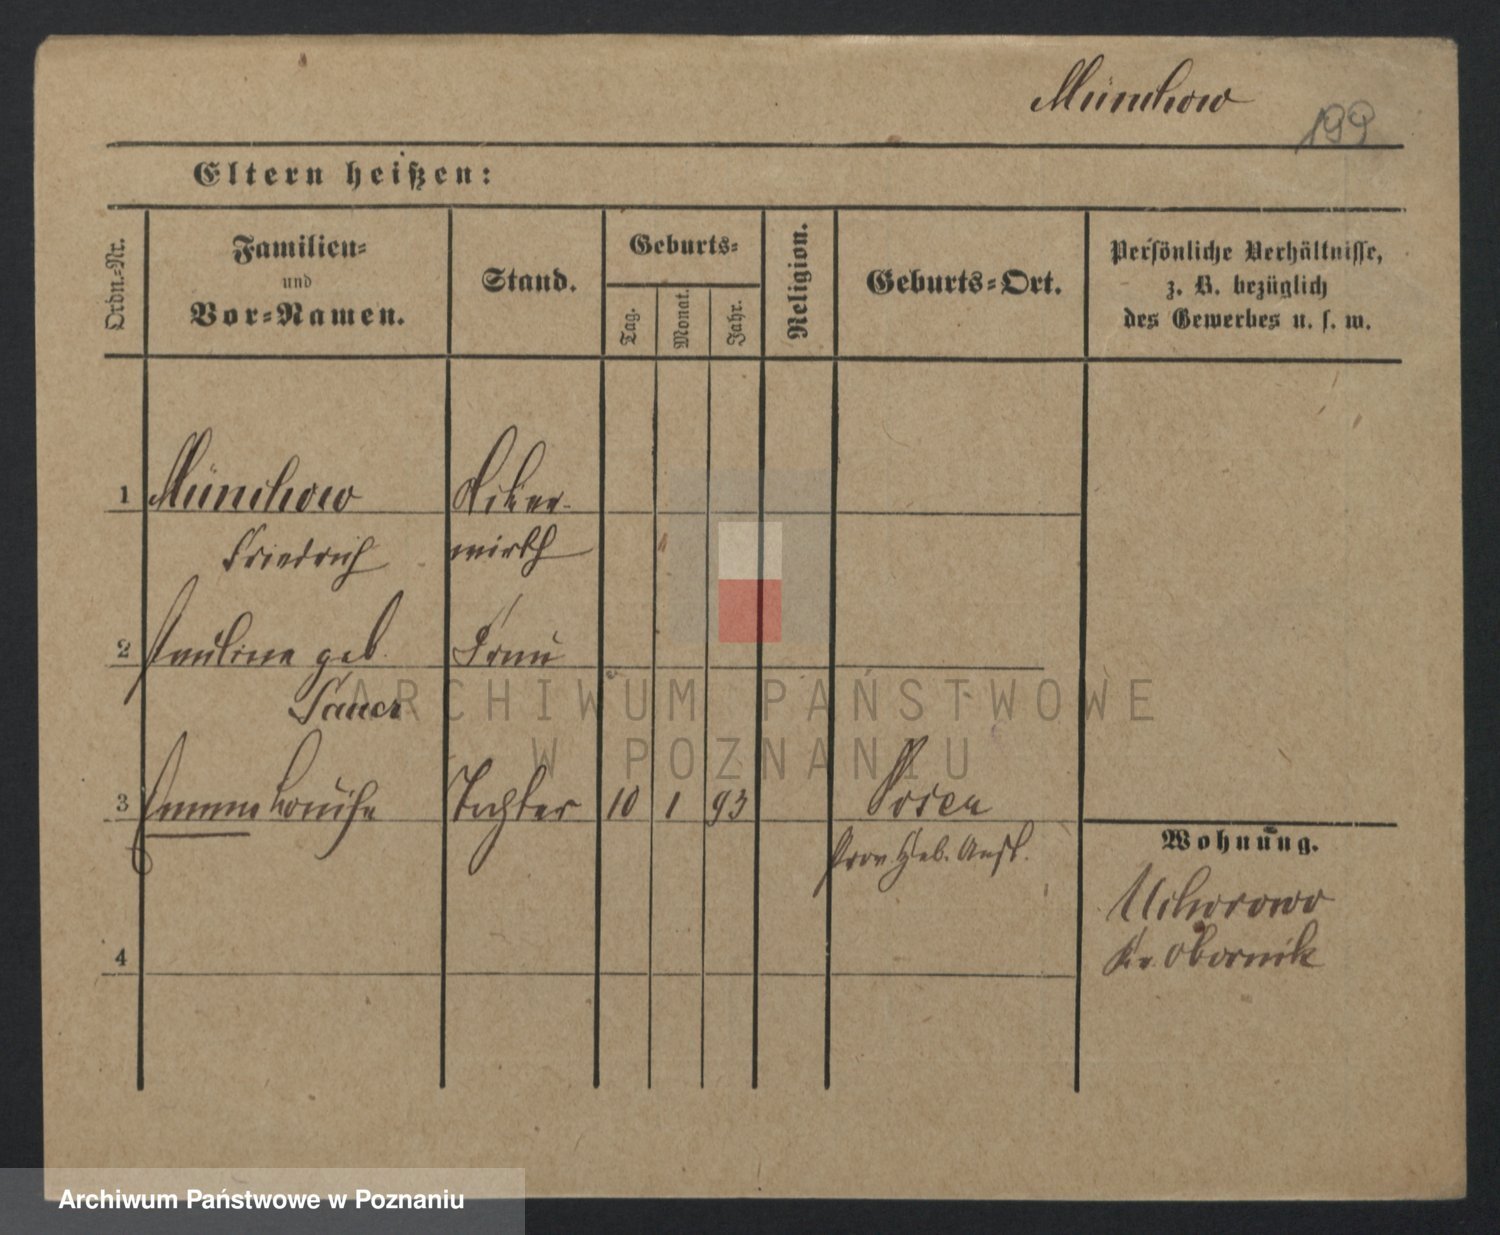 Münchow
199
Eltern heißen:
Ordn.-Nr.
Familien-
und
Vor-Namen.
Stand.
Geburts-
Tag.
Monat.
Jahr.
Religion.
Geburts-Ort.
Persönliche Verhältnisse,
z. B. bezüglich
des Gewerbes u. s. w.
1 Münchow Acker-
Friedrich wirth
2 Pauline geb. Frau
Sauer
ARCHIWUM PAŃSTWOWE
W POZNANIU
3 Emma Louise Tochter 10 1 93 Posen
Prov. Heb. Anst.
Wohnung.
Uchorowo
Kr. Obornik
4
Archiwum Państwowe w Poznaniu